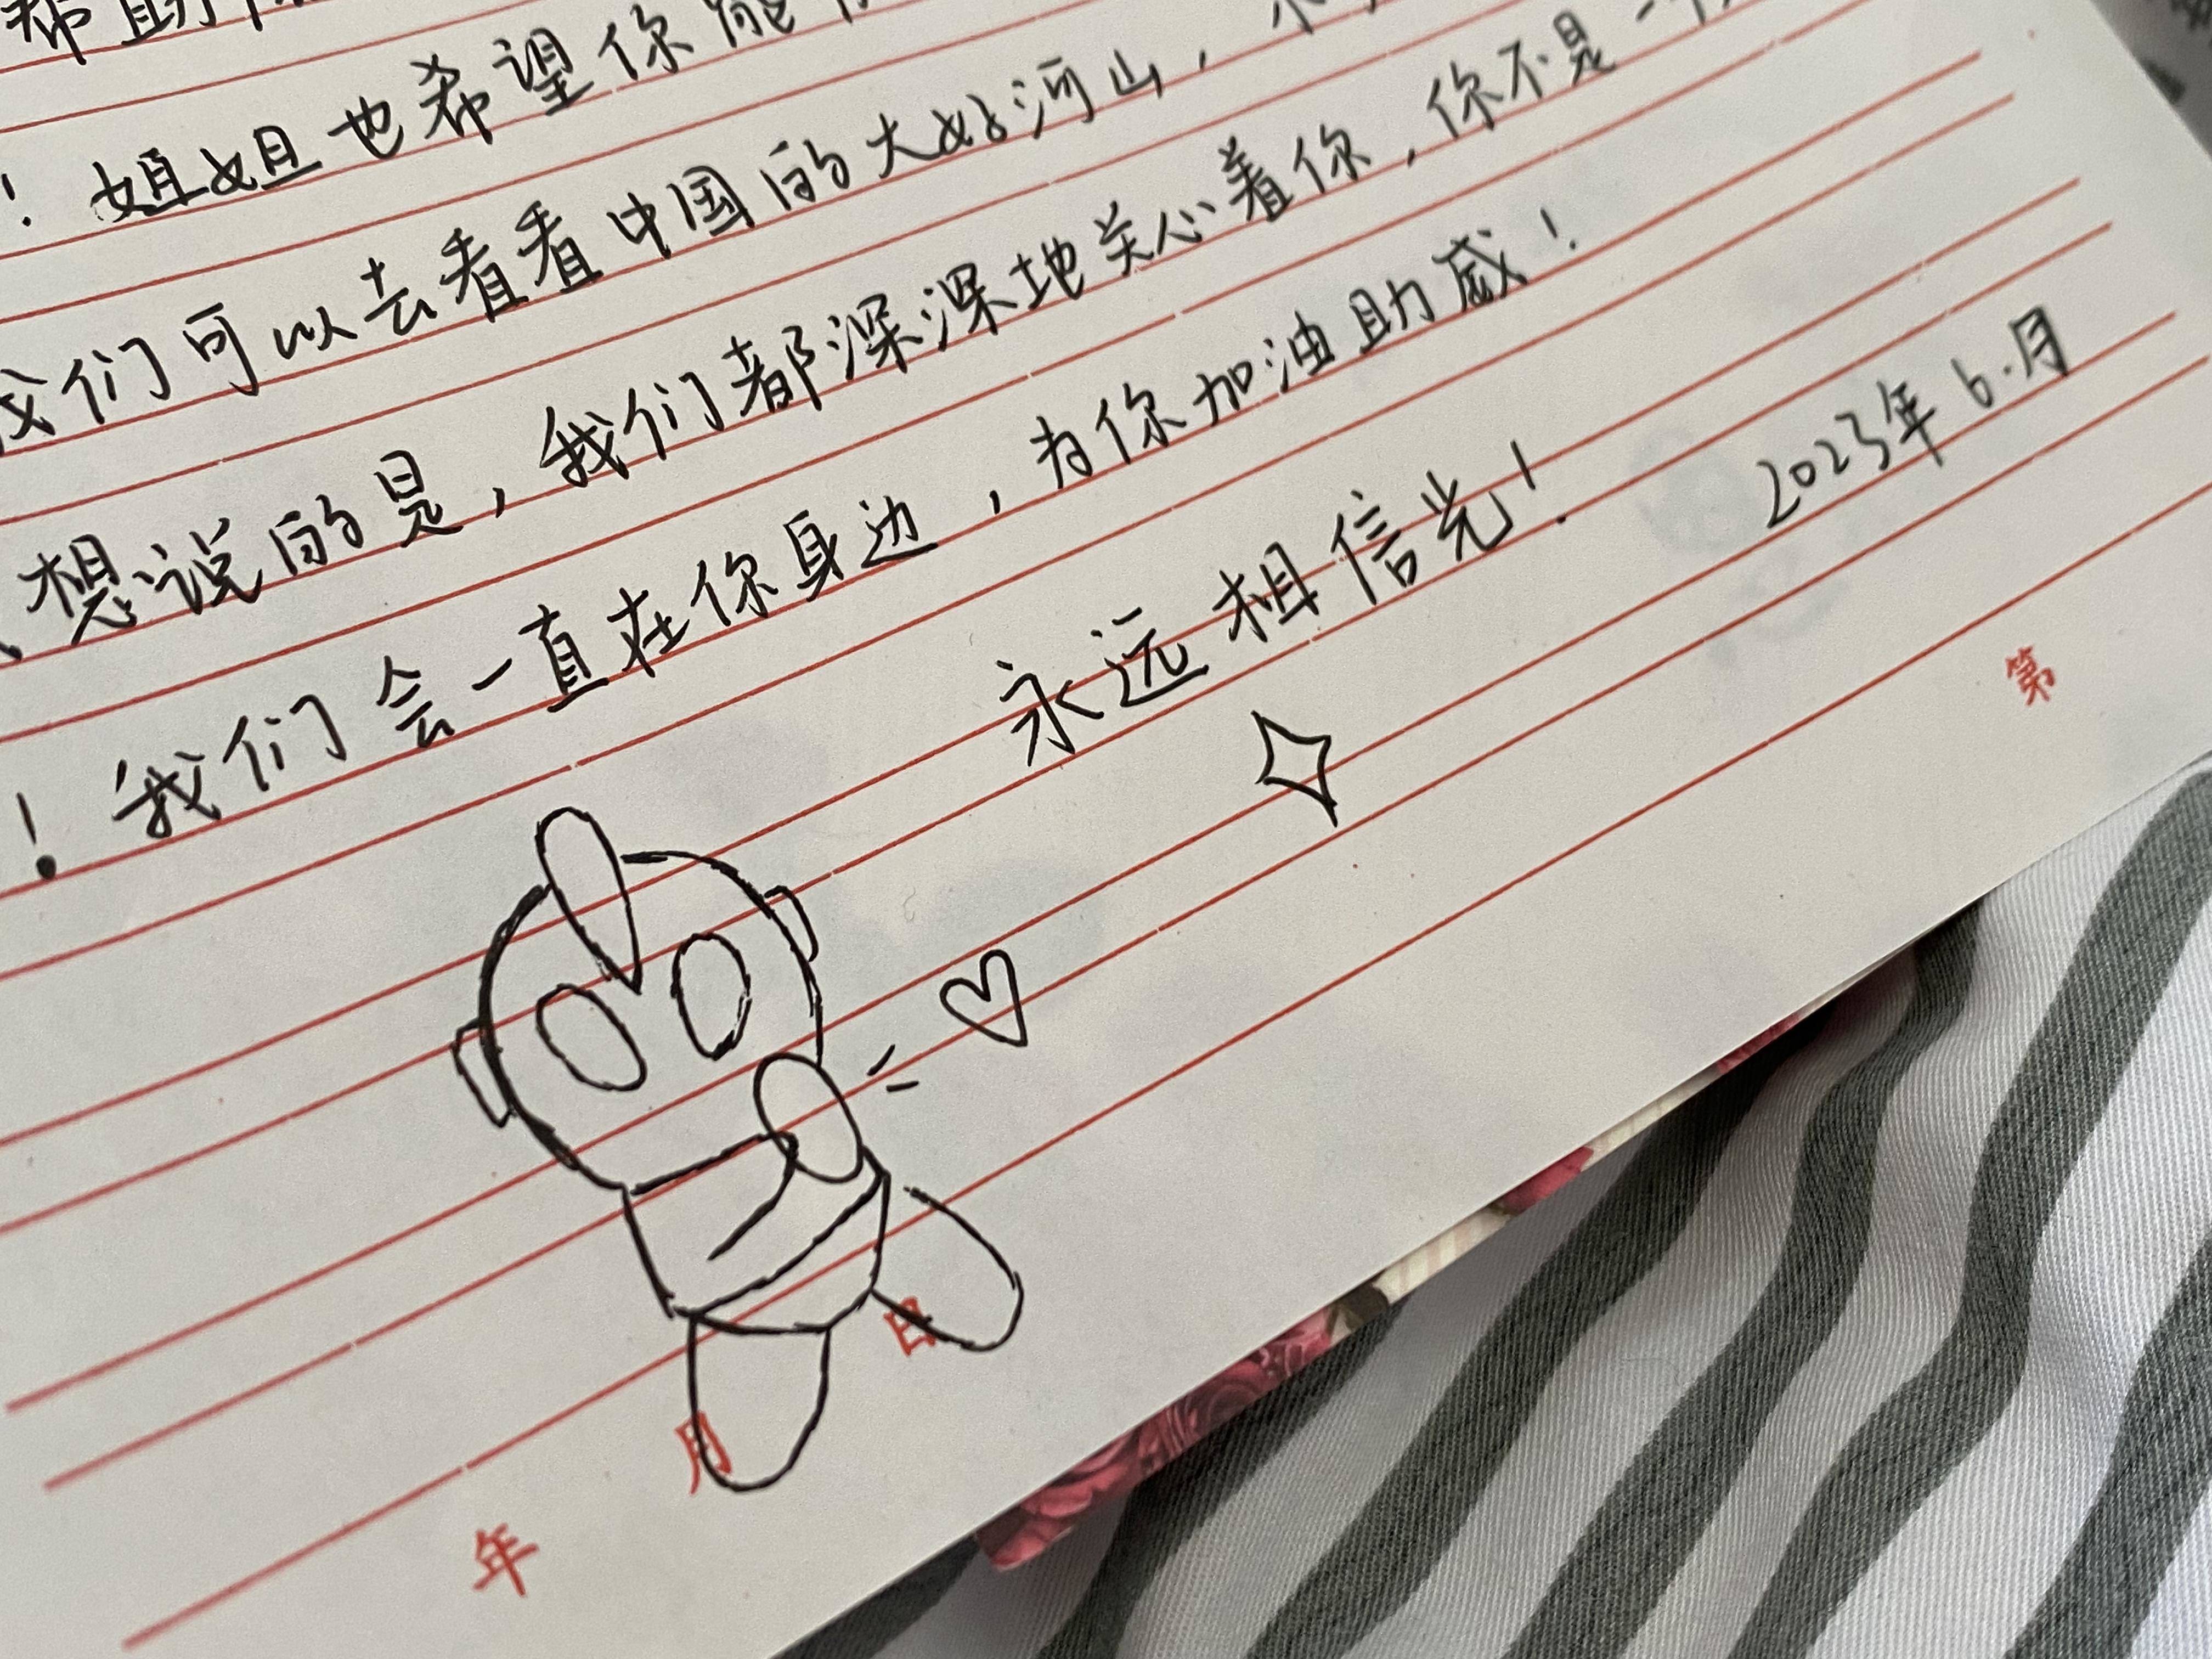 希助
！姐姐也希望你能
我们可以去看看中国的大好河山，不
想说的是，我们都深深地关心着你，你不是一个
！我们会一直在你身边，为你加油助威！
永远相信光！
2023年6.月
第
年 月 日